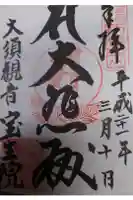 奉拝
平成二十一年
三月十日
大悲殿
大須観音
宝生院